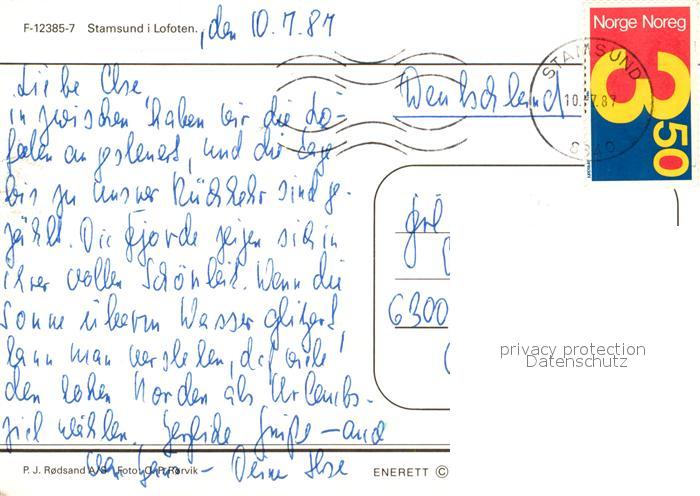 F-12385-7 Stamsund i Lofoten.
, den 10.7.87
Liebe Else
inzwischen haben wir die Lo-
foten angesteuert, und die Tage
bis zu unsrer Rückkehr sind ge-
zählt. Die Fjorde zeigen sich in
ihrer vollen Schönheit. Wenn die
Sonne überm Wasser glitzert,
kann man verstehen, daß viele
den hohen Norden als Urlaubs-
ziel wählen. Herzliche Grüße – auch
von – Deine Ilse
P. J. Rødsand A/S Foto: O. P. Rørvik
ENERETT ©
Deutschland
Norge Noreg
3 50
STAMSUND
10.7.87
Frl
6300
privacy protection
Datenschutz